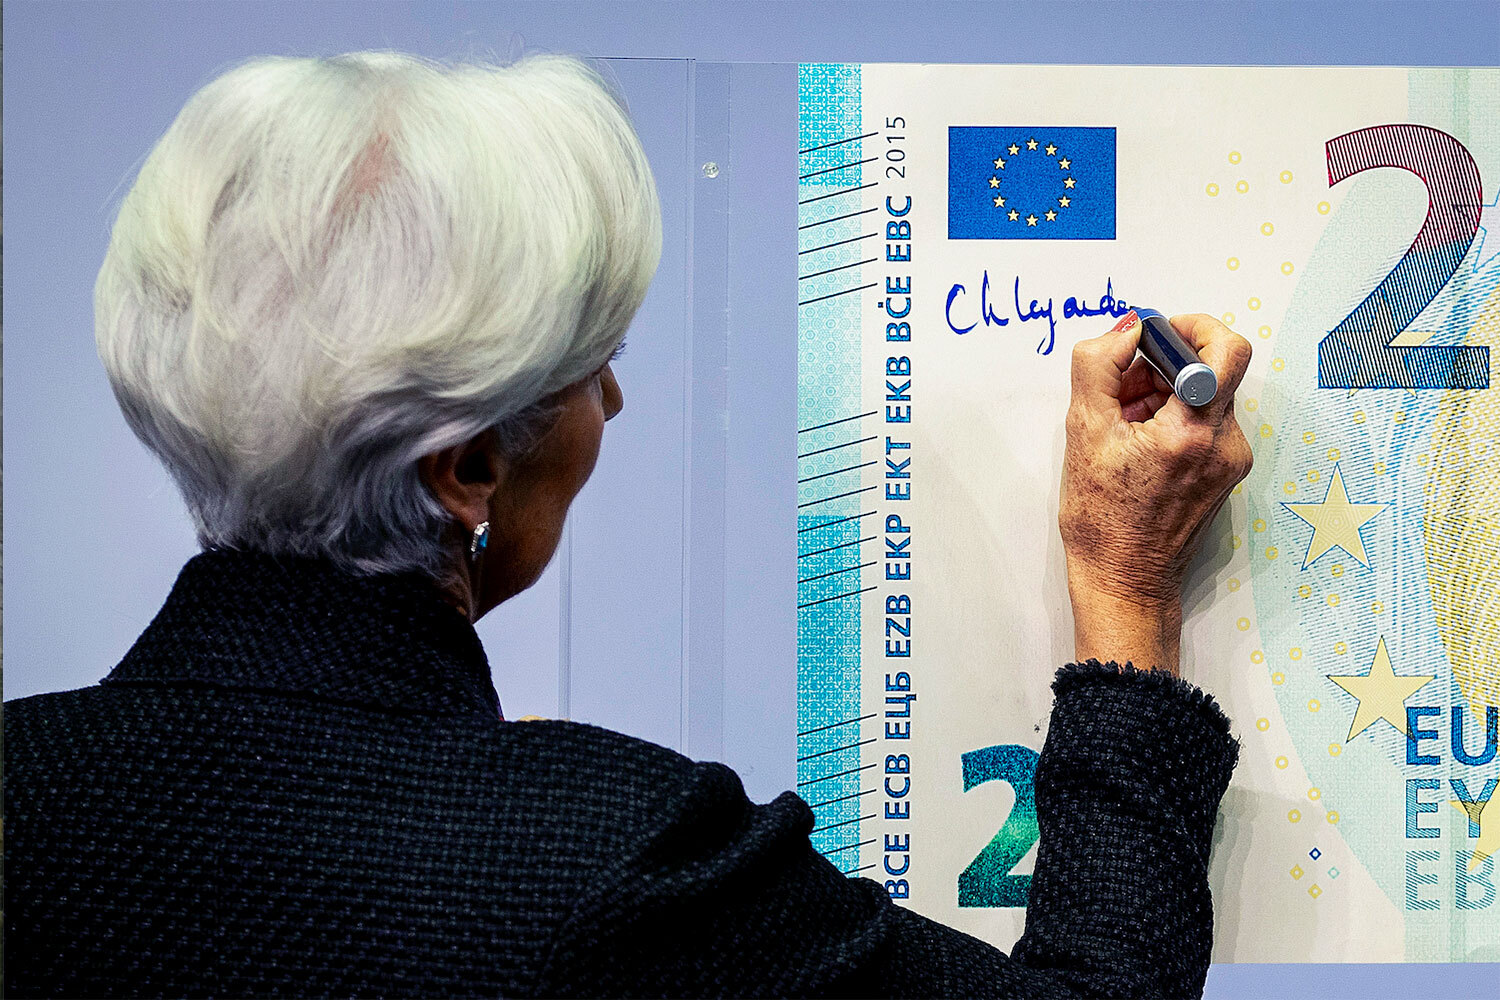 BCE ECB ЕЦБ EZB EKP ΕΚΤ EKB BĊE EBC 2015
Ch Lagarde
2
2
EU
ΕΥ
ЕВ